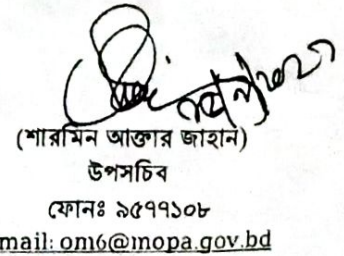 (শারমিন আক্তার জাহান)
উপসচিব
ফোনঃ ৯৫৭৭১০৮
mail: om6@mopa.gov.bd